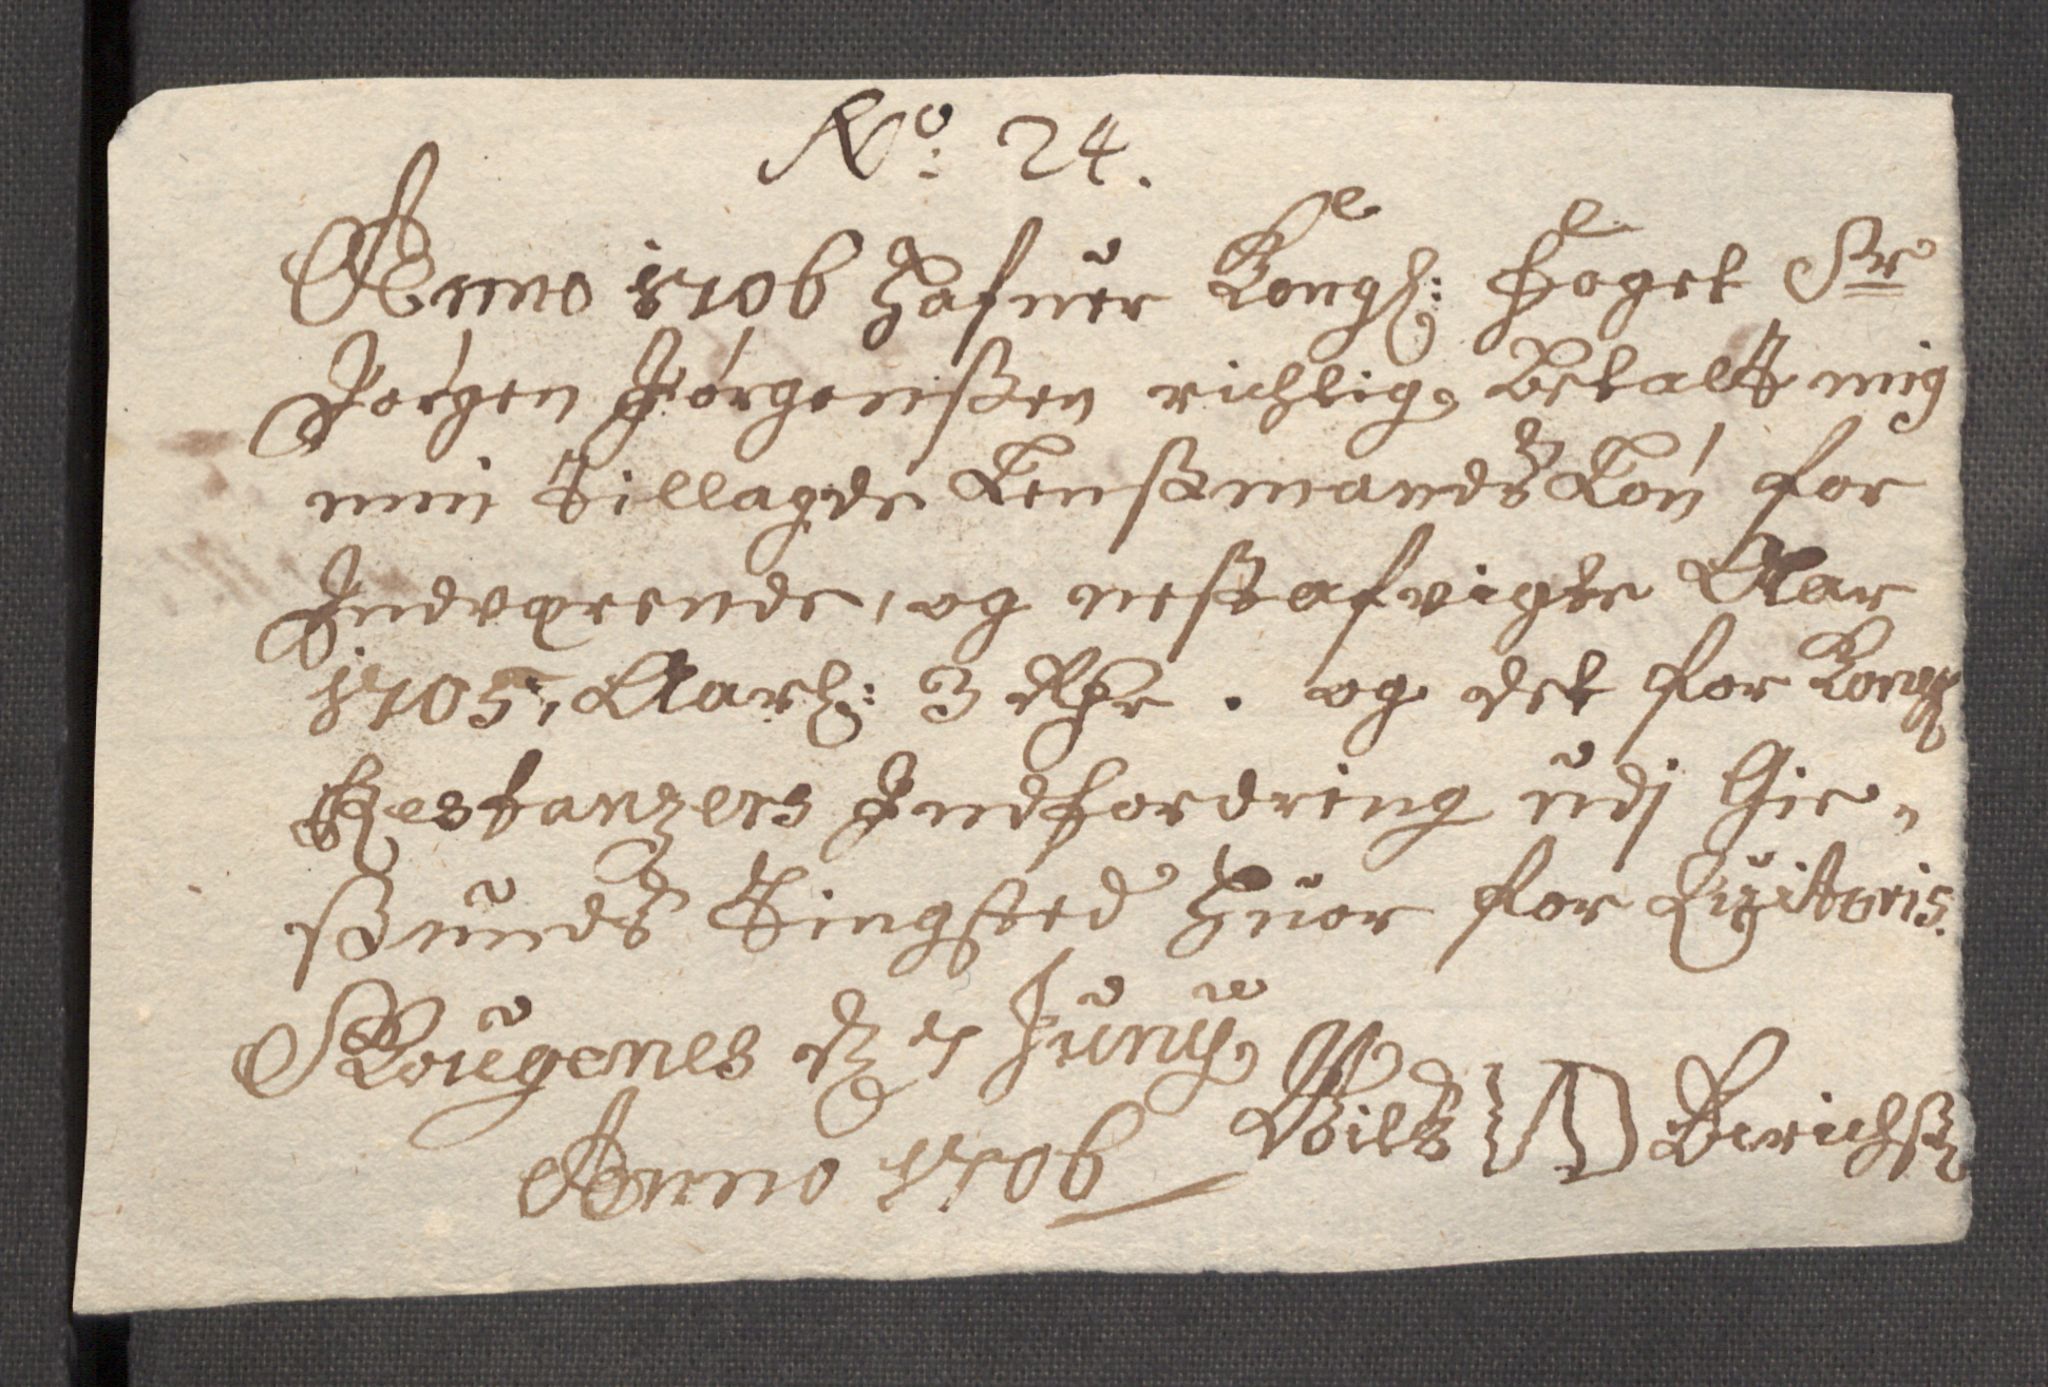 No: 24.
Anno 1706 Hafuer Kongl: Foget Sr
Jørgen Jørgenssen richtig Betalt mig
min Tillagde Lenssmands Løn for
Indverende, og nestafvigte Aar
1705, Aarl: 3 Rdr. og det for Kongl
Restanzers Indfordring udj Gie-
ssunds Tingsted Huor for Qvitteris.
Skougenes d 7 Junij
Anno 1706 Nilss Berichss